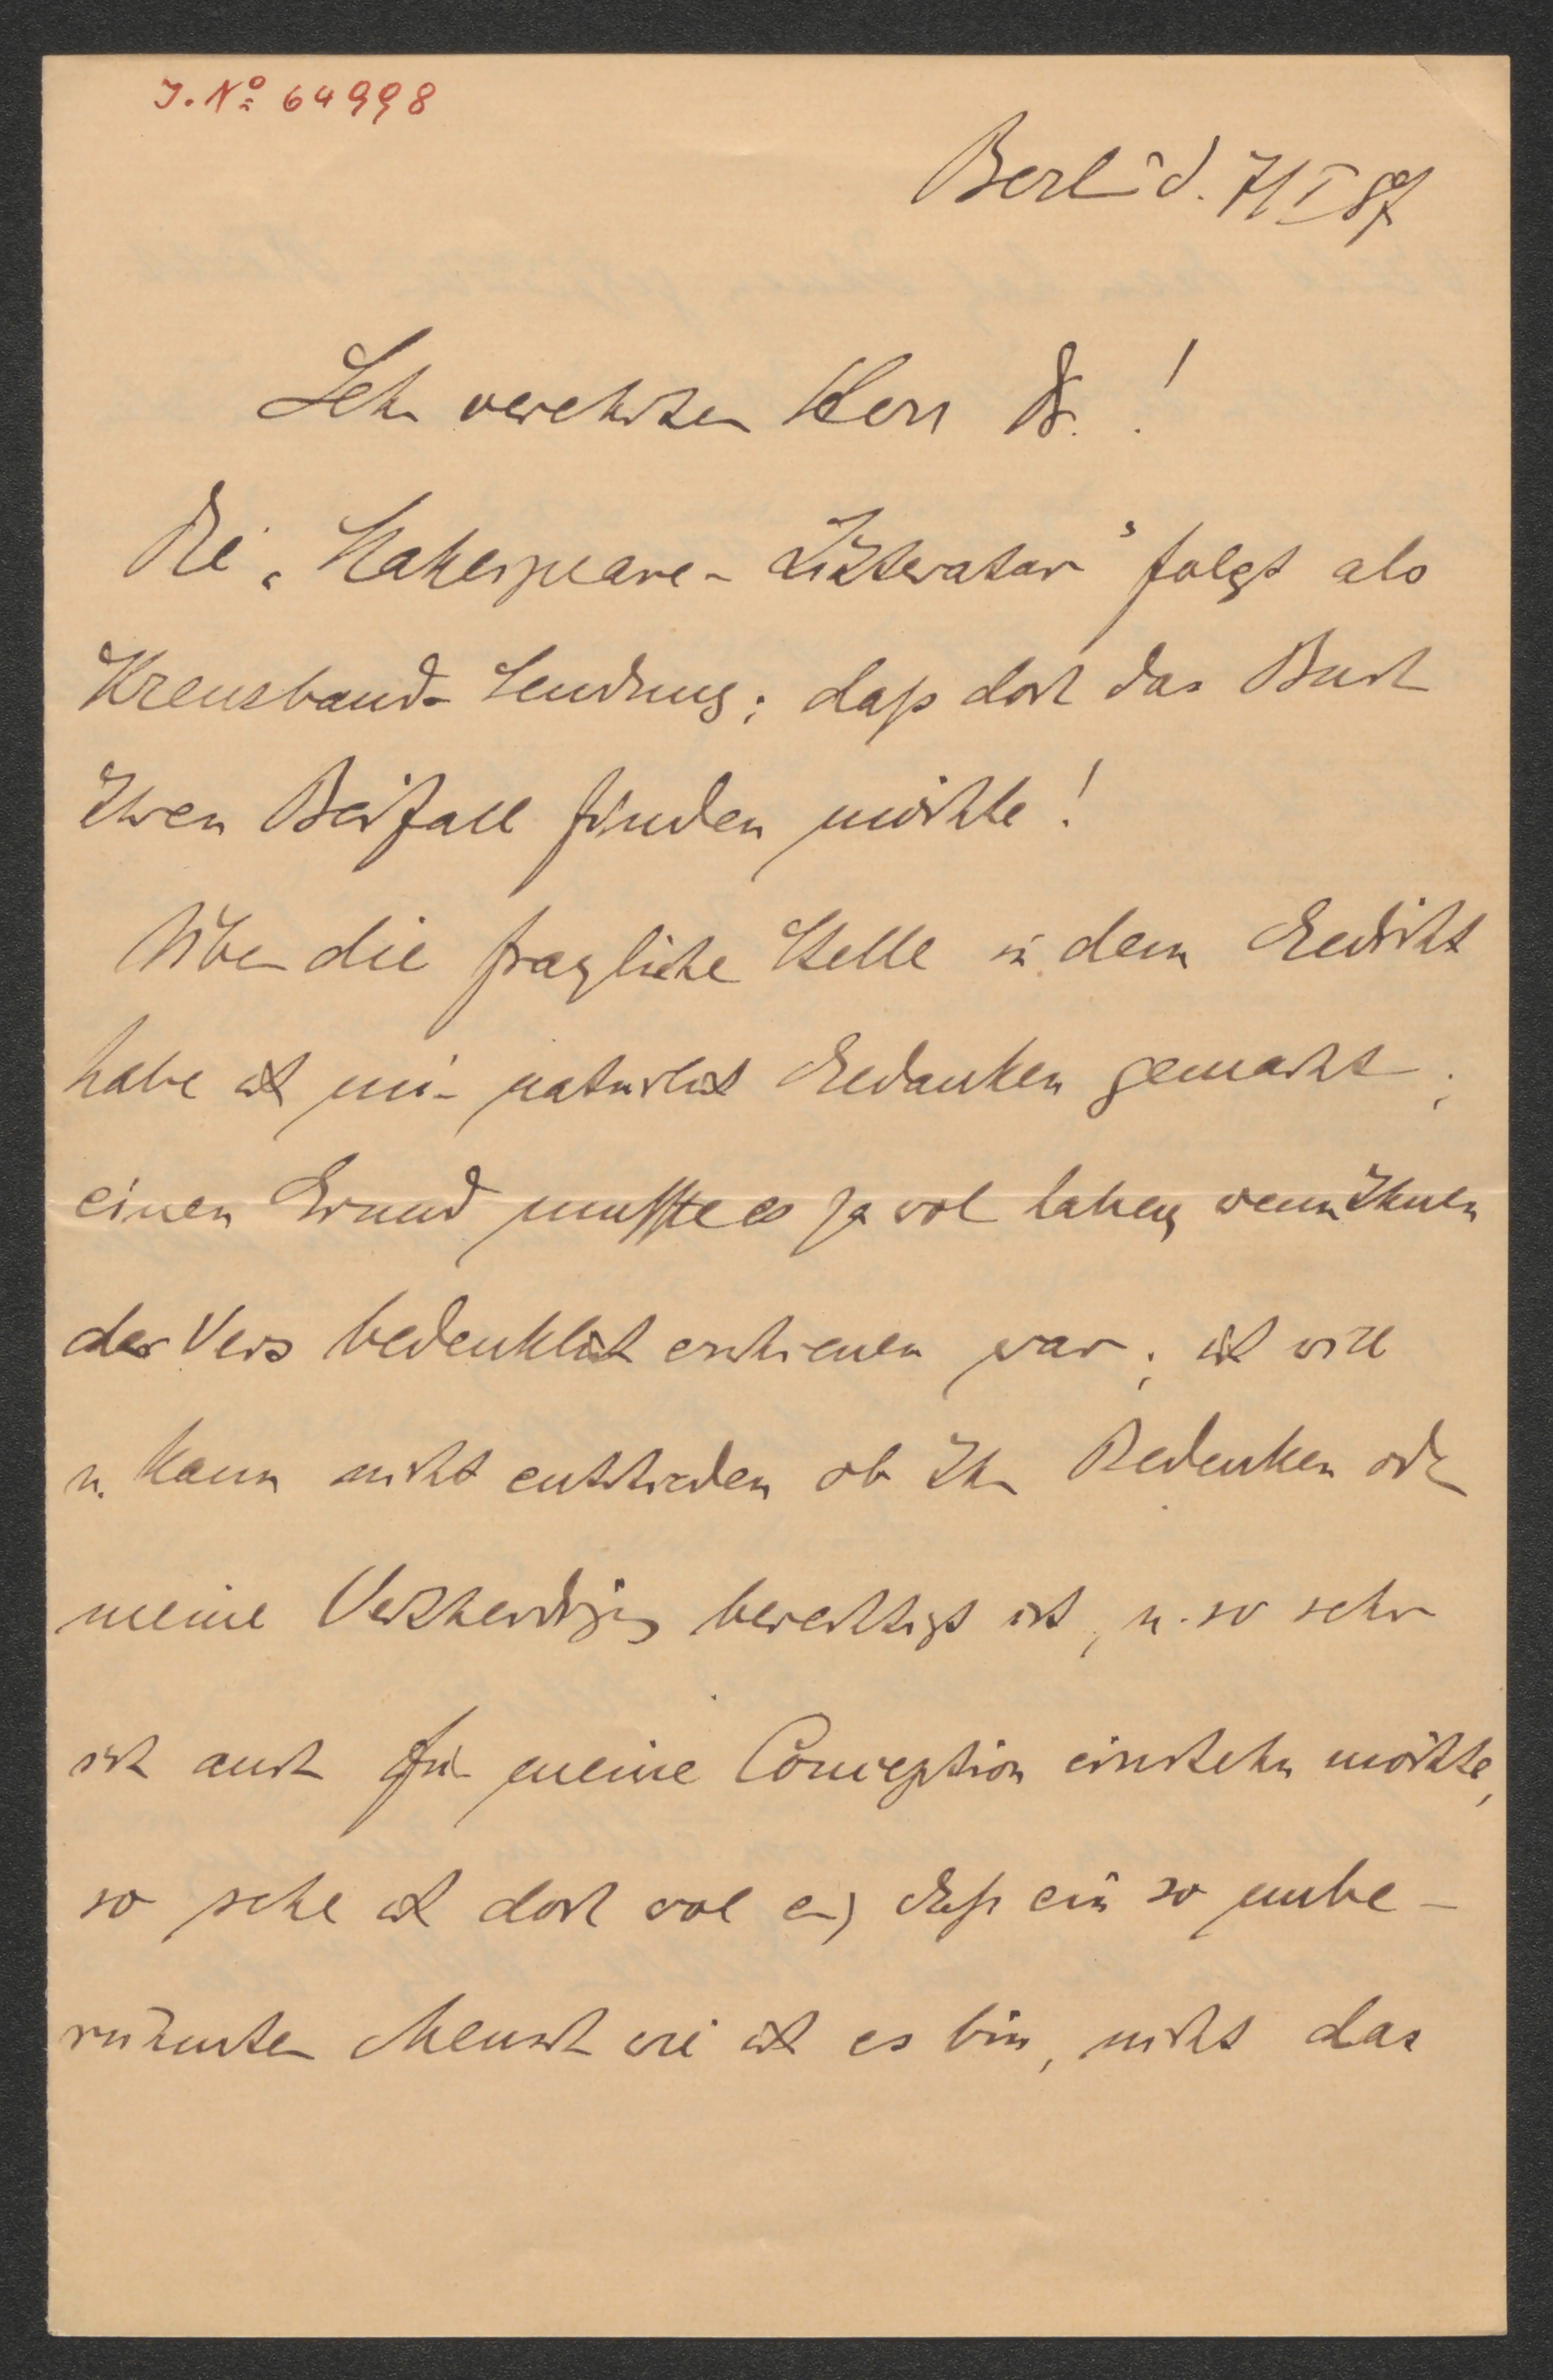 J. No 64998
Berlin d. 7/I 87
Sehr verehrter Herr Dr.!
Die „Shakespeare-Litteratur" folgt als
Kreuzband-Sendung; daß doch das Buch
Ihren Beifall finden möchte!
Über die fragliche Stelle in dem Gedicht
habe ich mir natürlich Gedanken gemacht;
einen Grund musste es ja wol haben, wenn Ihnen
der Vers bedenklich erschienen war; ich will
u. kann nicht entscheiden ob Ihr Bedenken oder
meine Vertheidigung berechtigt ist, u. so sehr
ich auch für meine Conception einstehn möchte,
so sehe ich doch wol ein, daß ein so unbe-
rühmter Mensch wie ich es bin, nicht das